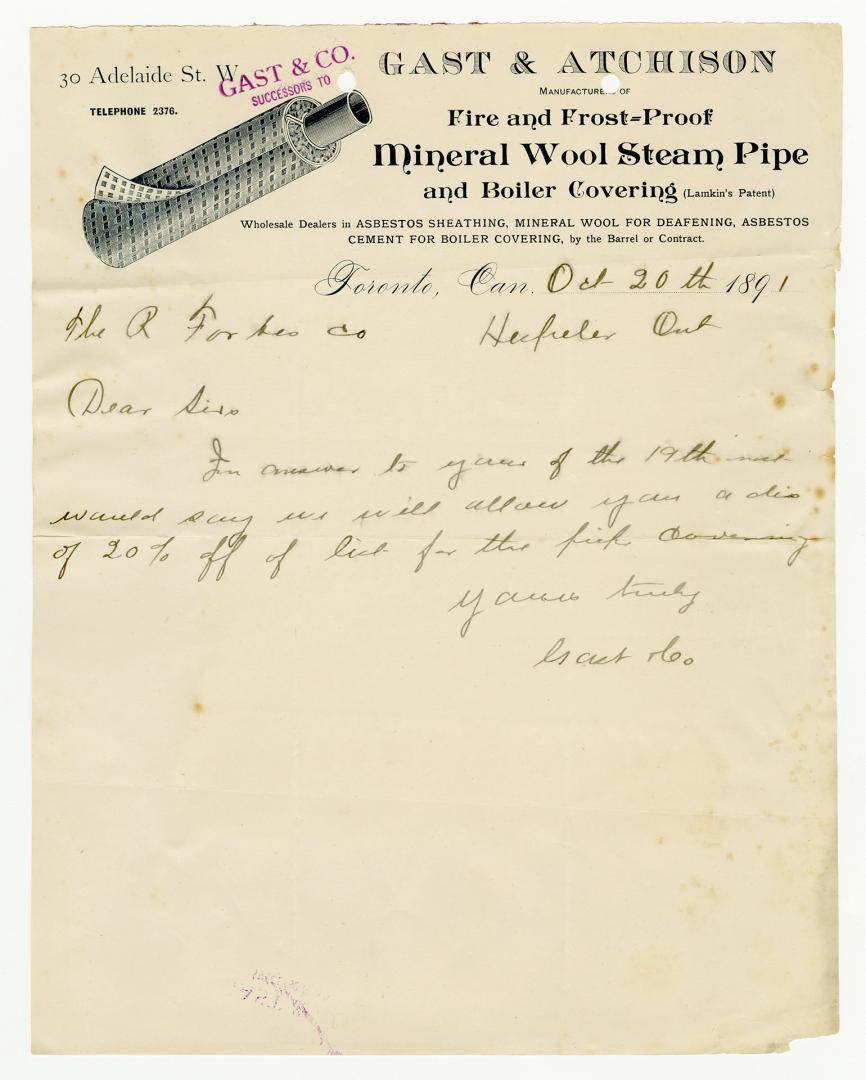 30 Adelaide St. W.
GAST & CO.
SUCCESSORS TO
GAST & ATCHISON
TELEPHONE 2376.
MANUFACTURERS OF
Fire and Frost=Proof
Mineral Wool Steam Pipe
and Boiler Covering (Lamkin's Patent)
Wholesale Dealers in ASBESTOS SHEATHING, MINERAL WOOL FOR DEAFENING, ASBESTOS
CEMENT FOR BOILER COVERING, by the Barrel or Contract.
Toronto, Can. Oct 20th 1891
The R Forbes co Hespeler Ont
Dear Sirs
In answer to yours of the 19th inst
would say we will allow you a dis
of 20% off of list for the pipe covering
Yours truly
Gast & Co